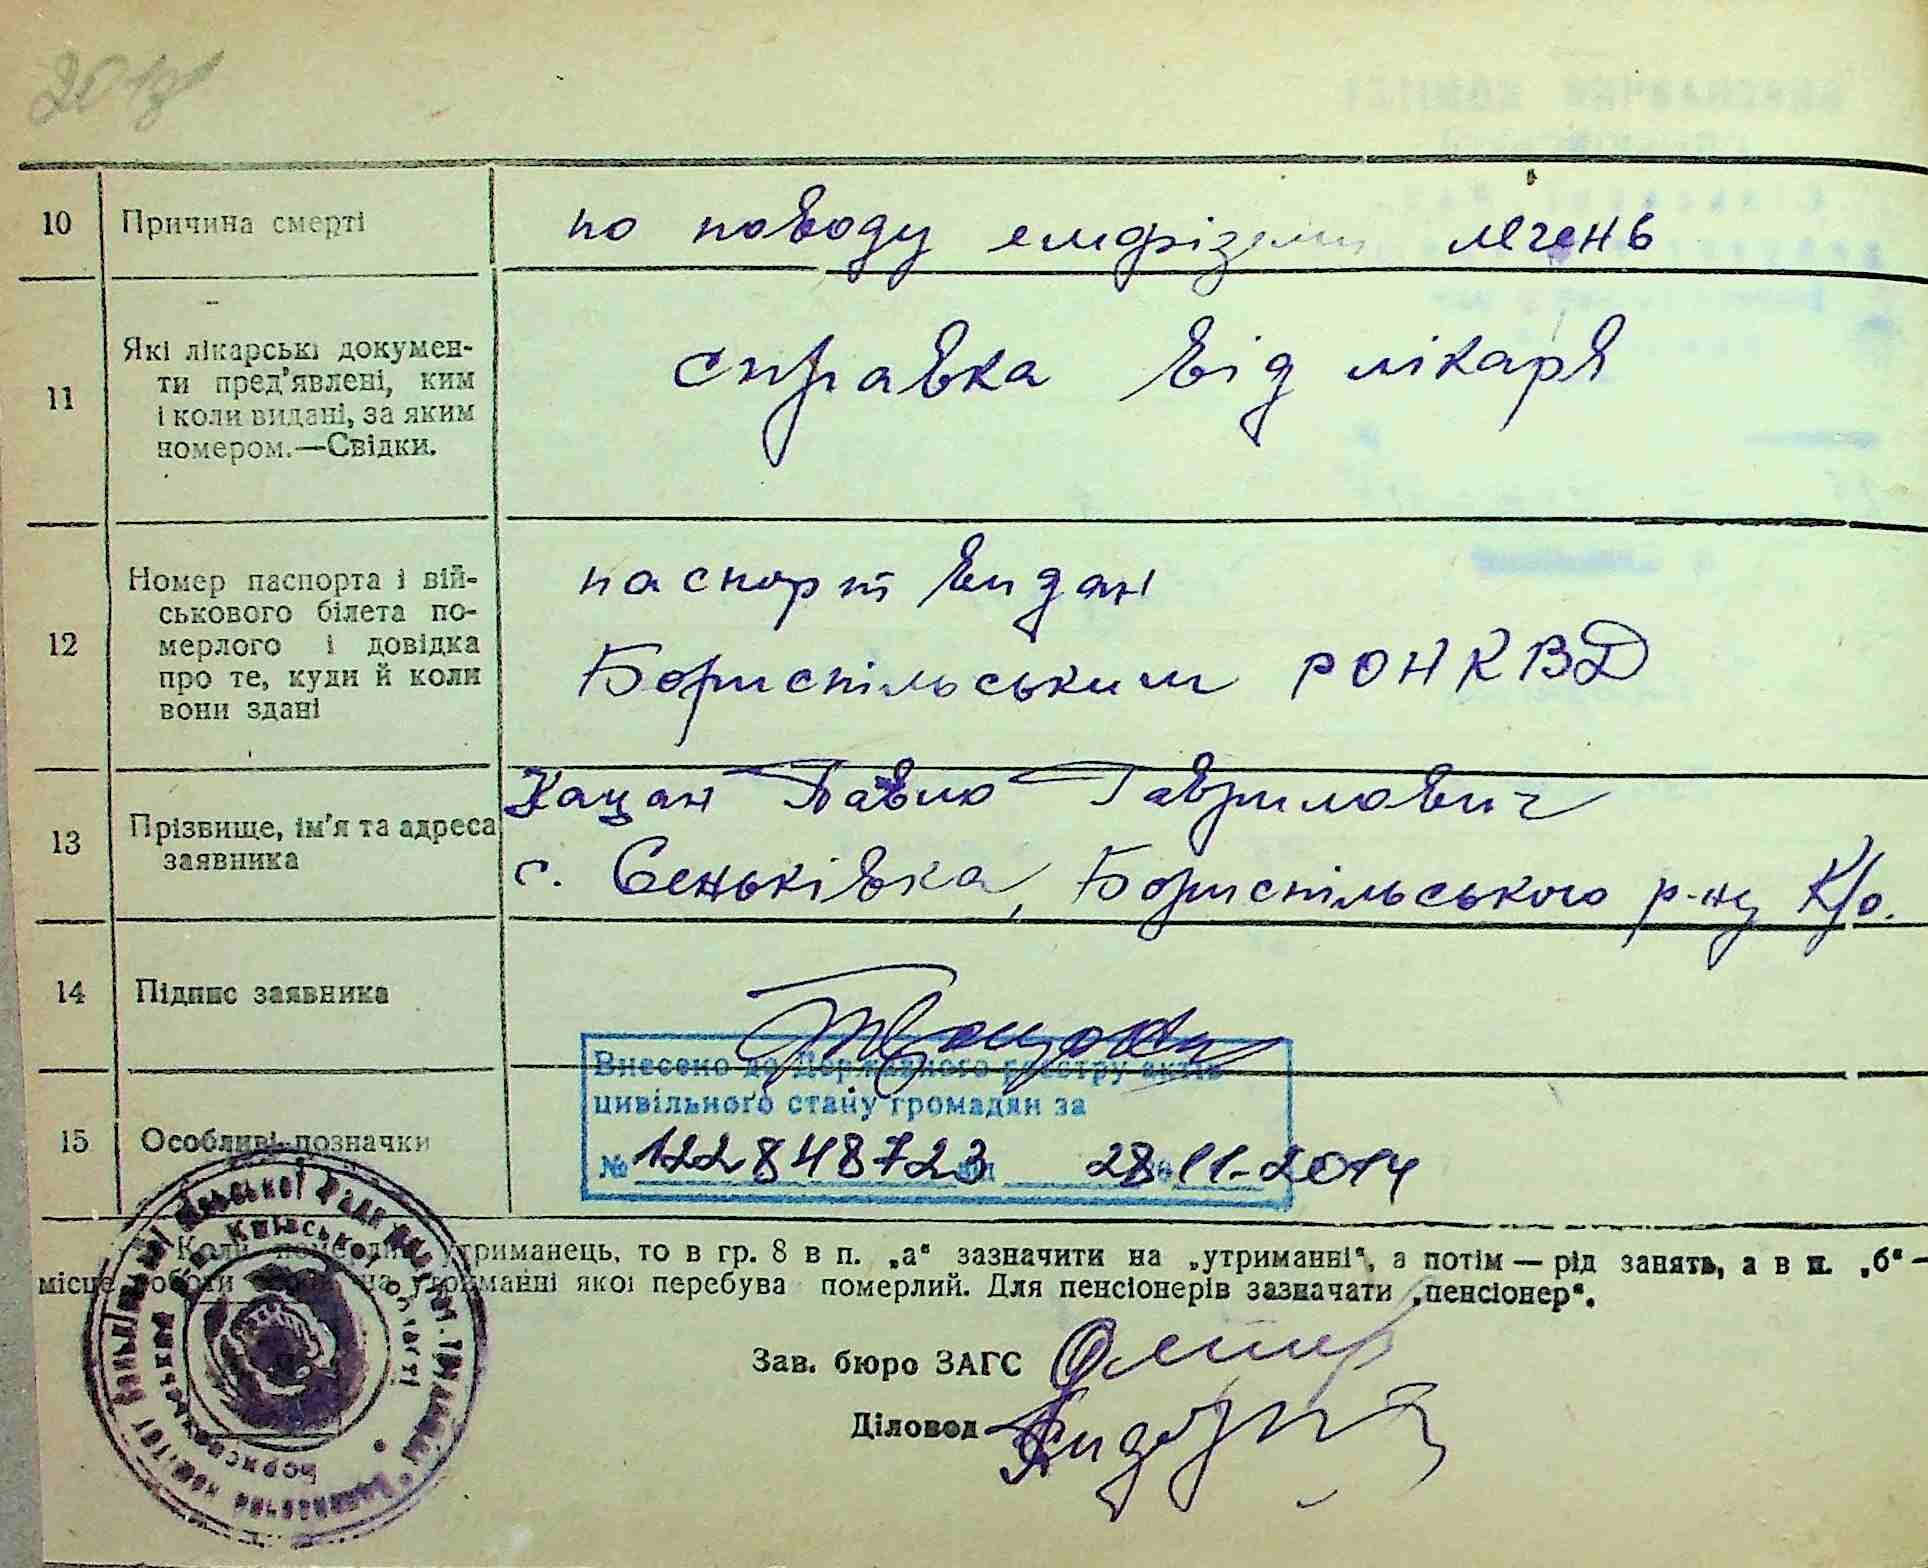 10 Причина смерті по поводу емфіземи легень
11 Які лікарські докумен-
ти пред’явлені, ким
і коли видані, за яким
номером.—Свідки.
справка від лікаря
12 Номер паспорта і вій-
ськового білета по-
мерлого і довідка
про те, куди й коли
вони здані
паспорт видан
Бориспільським РОНКВД
13 Прізвище, ім’я та адреса
заявника
Кацан Павло Гаврилович
с. Сеньківка, Бориспільського р-ну К/о.
14 Підпис заявника
15 Особливі позначки
Внесено до Державного реєстру актів
цивільного стану громадян за
№ 122848723 28.11.2014
Коли утриманець, то в гр. 8 в п. „а“ зазначити на „утриманні“, а потім — рід занять, а в п. „б“ —
місце роботи на утриманні якої перебува померлий. Для пенсіонерів зазначати „пенсіонер“.
Зав. бюро ЗАГС
Діловод
Київської області